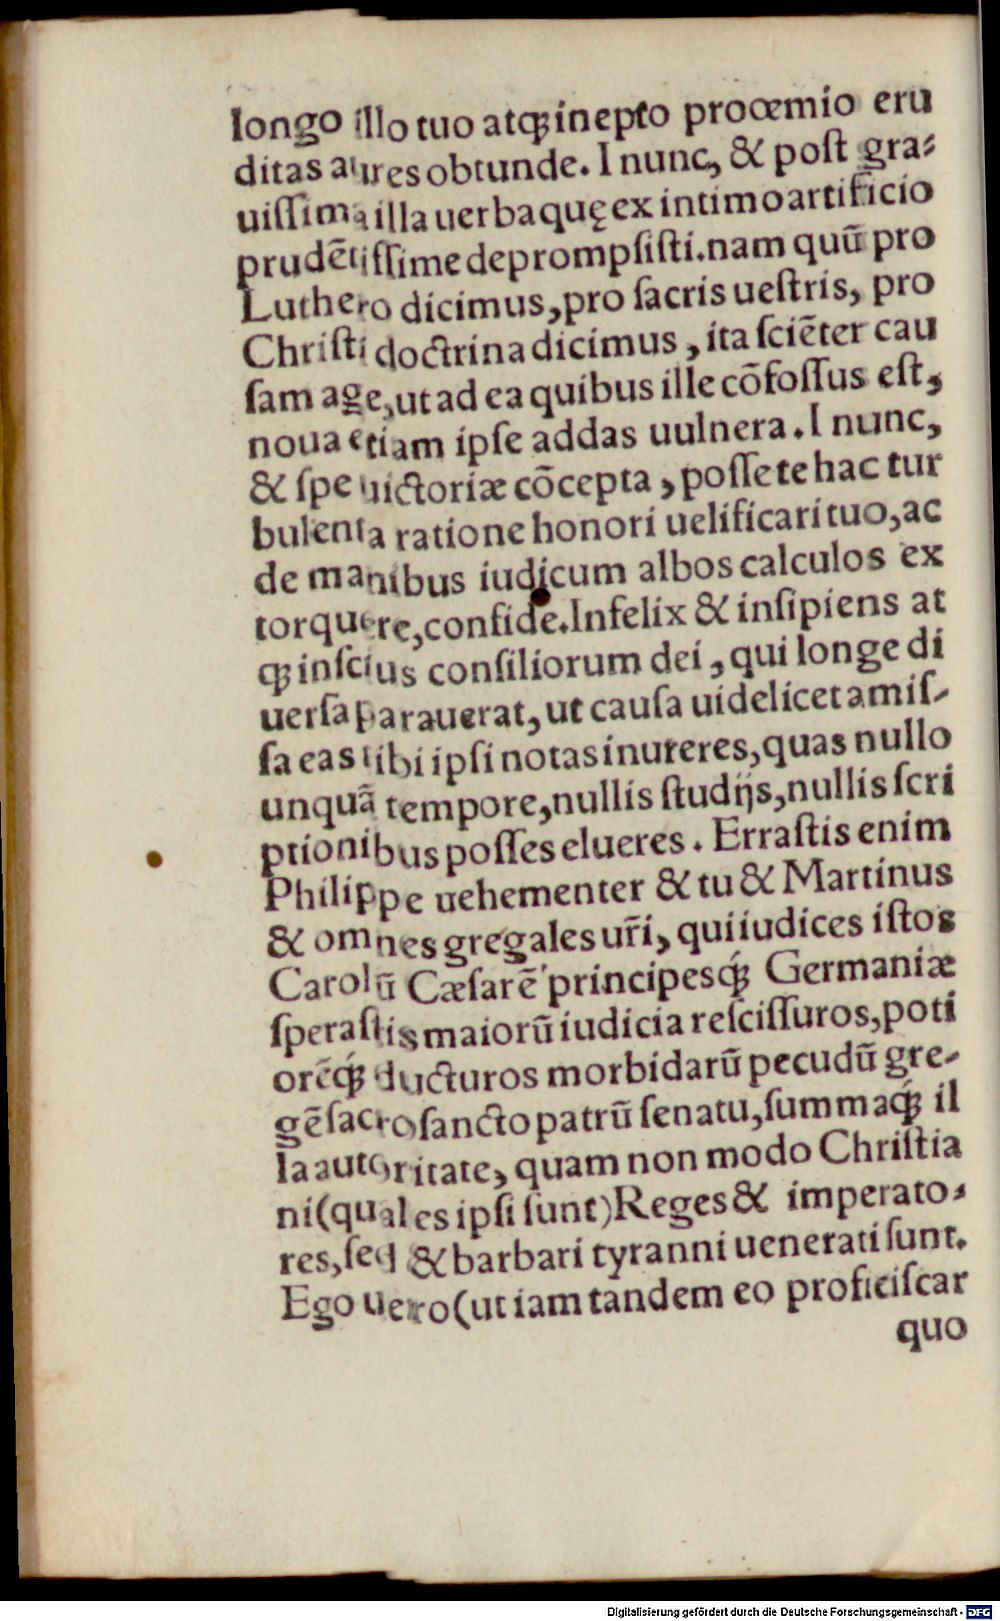 longo illo tuo atqꝫ inepto proœmio eru
ditas aures obtunde. I nunc, & poſt gra-
uiſſima illa uerba quę ex intimo artificio
prudẽtiſſime deprompſiſti. nam quũ pro
Luthero dicimus, pro ſacris ueſtris, pro
Chriſti doctrina dicimus, ita ſciẽter cau
ſam age, ut ad ea quibus ille cõfoſſus eſt,
noua etiam ipſe addas uulnera. I nunc,
& ſpe uictoriæ cõcepta, poſſe te hac tur
bulenta ratione honori uelificari tuo, ac
de manibus iudicum albos calculos ex
torquere, confide. Infelix & inſipiens at
qꝫ inſcius conſiliorum dei, qui longe di
uerſa parauerat, ut cauſa uidelicet amiſ-
ſa eas tibi ipſi notas inureres, quas nullo
unquã tempore, nullis ſtudijs, nullis ſcri
ptionibus poſſes elueres. Erraſtis enim
Philippe uehementer & tu & Martinus
& omnes gregales ur̃i, qui iudices iſtos
Carolũ Cæſarẽ principesqꝫ́ Germaniæ
ſperaſtis maiorũ iudicia reſciſſuros, poti
orẽqꝫ́ ducturos morbidarũ pecudũ gre-
gẽ ſacroſancto patrũ ſenatu, ſummaqꝫ́ il
la autoritate, quam non modo Chriſtia
ni (quales ipſi ſunt) Reges & imperato-
res, ſed & barbari tyranni uenerati ſunt.
Ego uero (ut iam tandem eo proficiſcar
quo
Digitalisierung gefördert durch die Deutsche Forschungsgemeinschaft - DFG